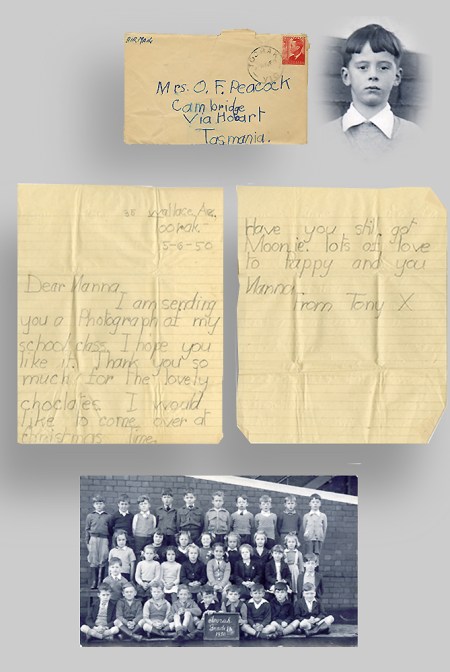 AIR MAIL
Mrs. O. F. Peacock
Cambridge
Via Hobart
Tasmania.
35 Wallace Ave
Toorak
5-6-50
Dear Nanna
I am sending
you a Photograph of my
school class. I hope you
like it. Thank you so
much for the lovely
choclates. I would
like to come over at
christmas time.
Have you still got
Moonie. lots of love
to happy and you
Nanna.
From Tony X
1950